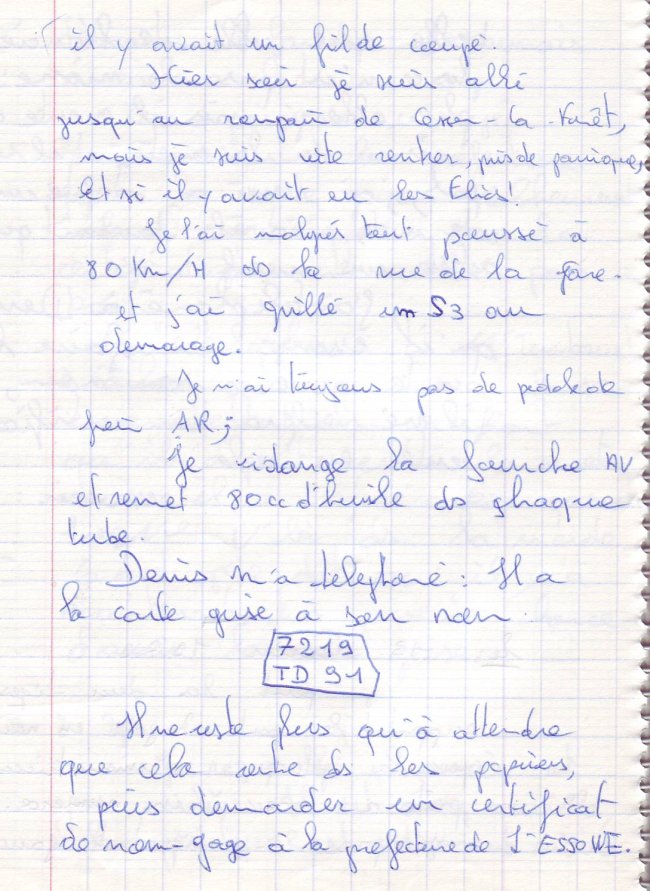 il y avait un fil de coupé.
Hier soir je suis allé
jusqu'au rempart de Cesson-la-Forêt,
mais je suis vite rentrer, pris de panique,
Et si il y avait eu les Flics!
Je l'ai malgrés tout poussé à
80 Km/H ds la rue de la gare.
et j'ai grillé un S3 au
demarage.
Je n'ai toujours pas de pedale de
frein AR;
Je vidange la fourche AV
et remet 80cc d'huile ds chaque
tube.
Denis m'a telephoné : Il a
la carte grise à son nom.
7219
TD 91
Il ne reste plus qu'à attendre
que cela rentre ds les papiers,
puis demander un certificat
de nom-gage à la prefecture de l'ESSONNE.